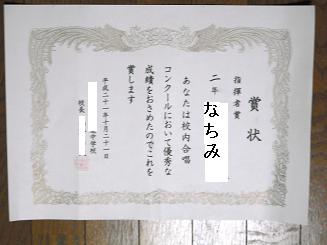 賞状
指揮者賞
二年 なちみ
あなたは校内合唱
コンクールにおいて優秀な
成績をおさめたのでこれを
賞します
平成二十一年十月二十一日
中学校
校長